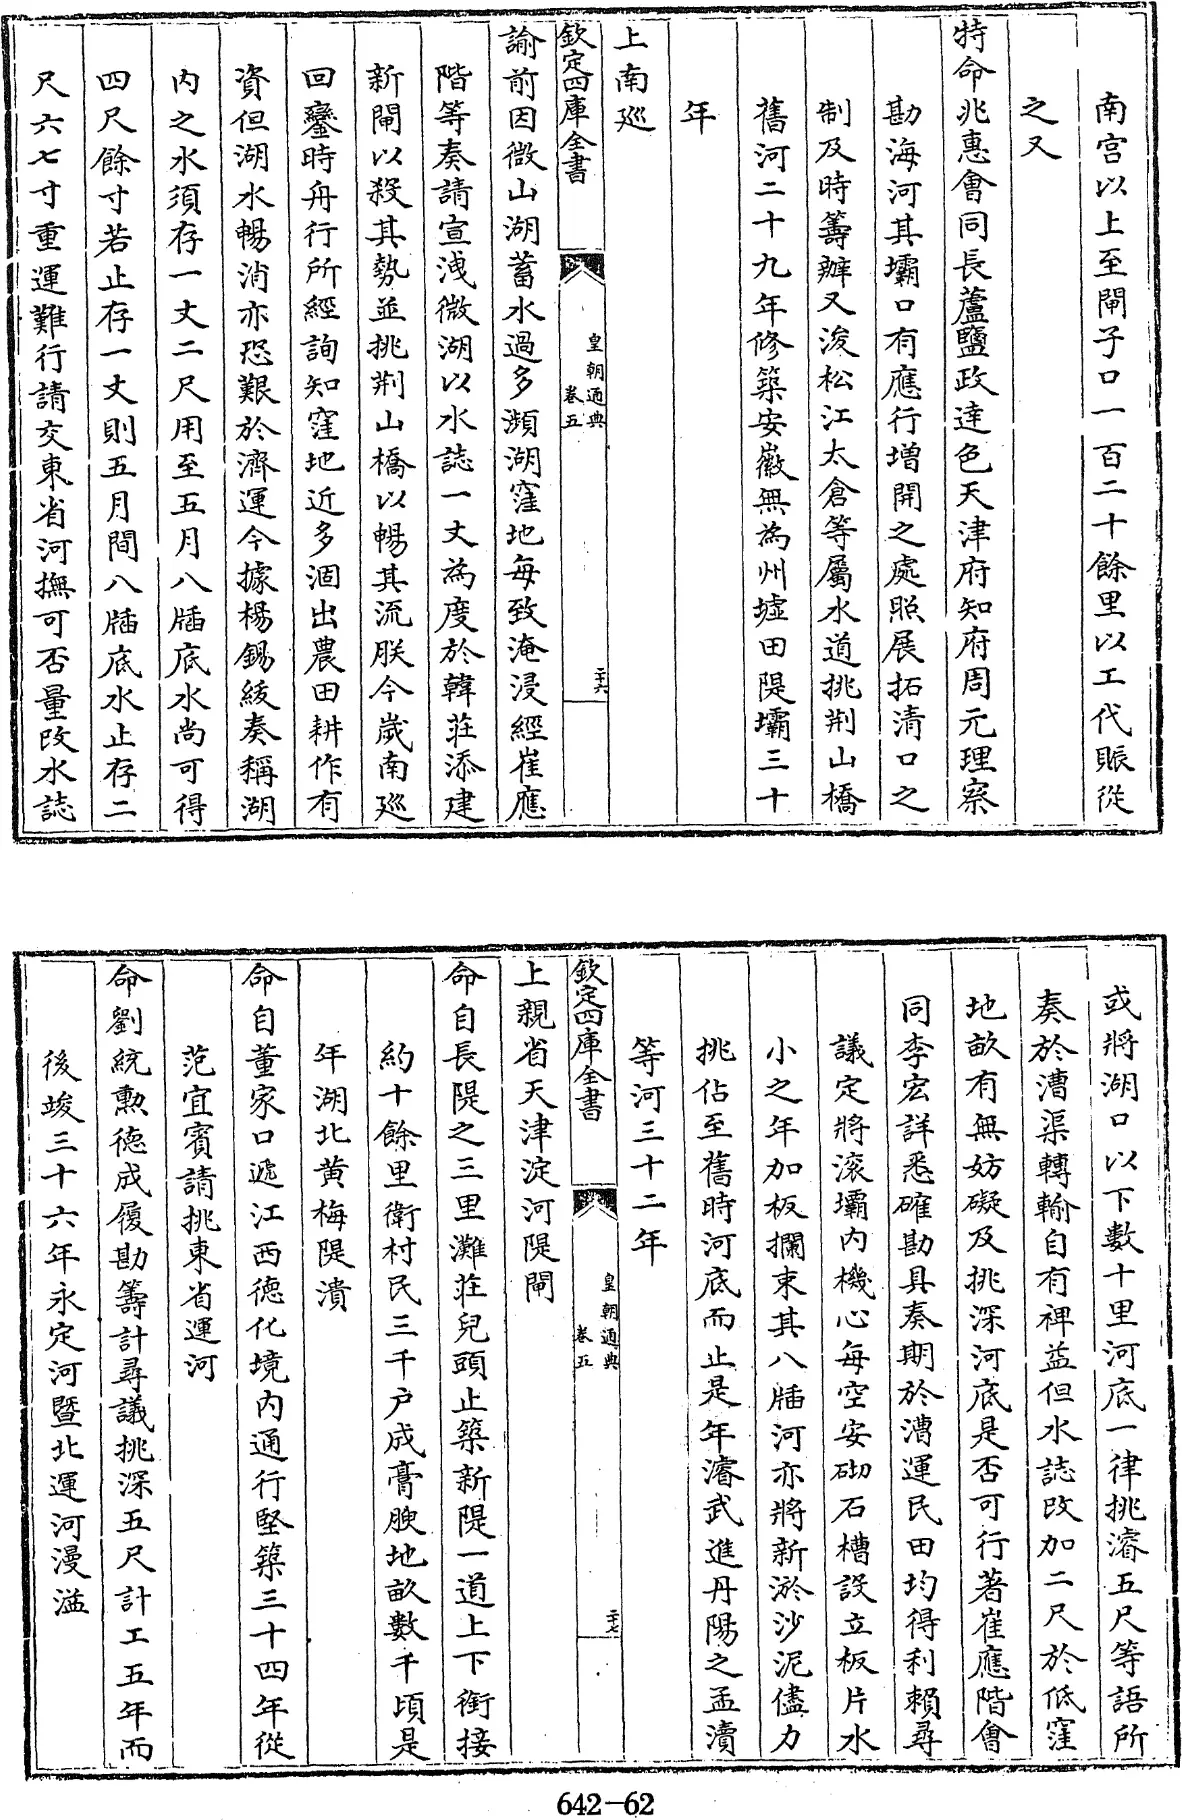 南宫以上至閘子口一百二十餘里以工代賑從
之又
特命兆惠會同長蘆鹽政達色天津府知府周元理察
勘海河其壩口有應行增開之處照展拓清口之
制及時籌辦又浚松江太倉等屬水道挑荆山橋
舊河二十九年修築安徽無為州墟田隄壩三十
年
上南巡
欽定四庫全書
皇朝通典
卷五
二十六
諭前因微山湖蓄水過多瀕湖窪地每致淹浸經崔應
階等奏請宣洩微湖以水誌一丈為度於韓莊添建
新閘以殺其勢並挑荆山橋以暢其流朕今歲南巡
回鑾時舟行所經詢知窪地近多涸出農田耕作有
資但湖水暢消亦恐艱於濟運今據楊錫紱奏稱湖
内之水須存一丈二尺用至五月八牐底水尚可得
四尺餘寸若止存一丈則五月間八牐底水止存二
尺六七寸重運難行請交東省河撫可否量改水誌
或將湖口以下數十里河底一律挑濬五尺等語所
奏於漕渠轉輸自有裨益但水誌改加二尺於低窪
地畝有無妨礙及挑深河底是否可行著崔應階會
同李宏詳悉確勘具奏期於漕運民田均得利賴尋
議定將滚壩内機心每空安砌石槽設立板片水
小之年加板攔束其八牐河亦將新淤沙泥儘力
挑佔至舊時河底而止是年濬武進丹陽之孟瀆
等河三十二年
欽定四庫全書
皇朝通典
卷五
二十七
上親省天津淀河隄閘
命自長隄之三里灘莊兒頭止築新隄一道上下銜接
約十餘里衛村民三千戶成膏腴地畝數千頃是
年湖北黄梅隄潰
命自董家口遞江西德化境内通行堅築三十四年從
范宜賓請挑東省運河
命劉統勲德成履勘籌計尋議挑深五尺計工五年而
後竣三十六年永定河暨北運河漫溢
642-62